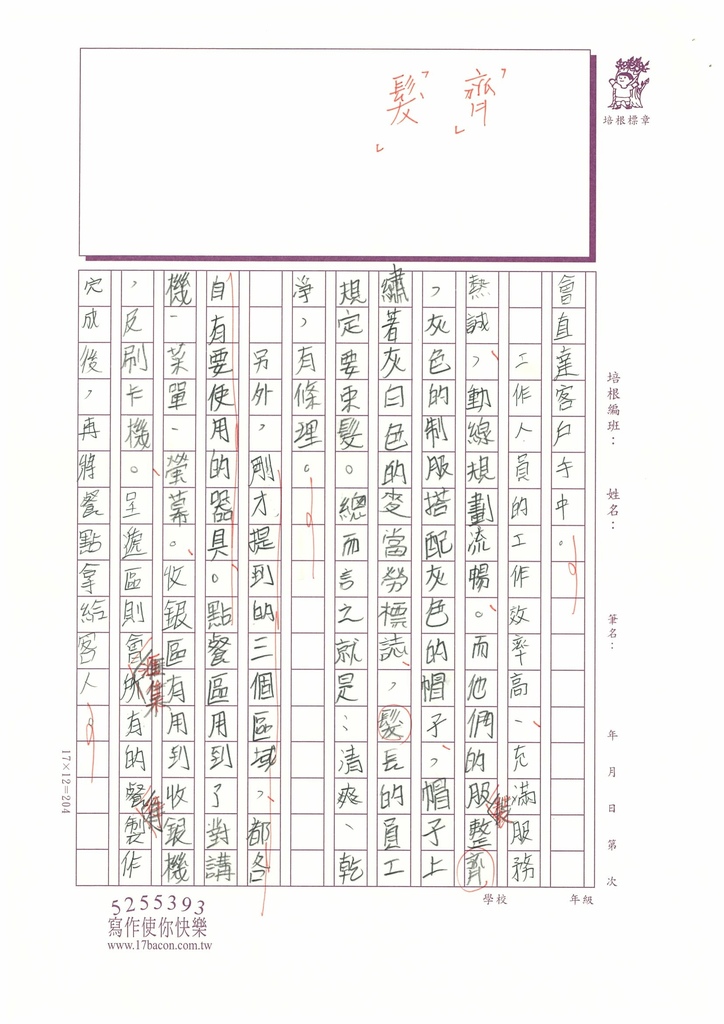 齊
髮
培根標章
會直達客戶手中。
工作人員的工作效率高、充滿服務
熱誠，動線規劃流暢。而他們的服裝整齊
，灰色的制服搭配灰色的帽子，帽子上
繡著灰白色的麥當勞標誌，髮長的員工
規定要束髮。總而言之就是：清爽、乾
淨，有條理。
另外，剛才提到的三個區域，都各
自有要使用的器具。點餐區用到了對講
機、菜單、螢幕。收銀區有用到收銀機
，及刷卡機。呈遞區則會匯集所有的餐製作
完成後，再將餐點拿給客人
培根編班： 姓名： 筆名： 年 月 日 第 次
17×12=204
學校 年級
5255393
寫作使你快樂
www.17bacon.com.tw